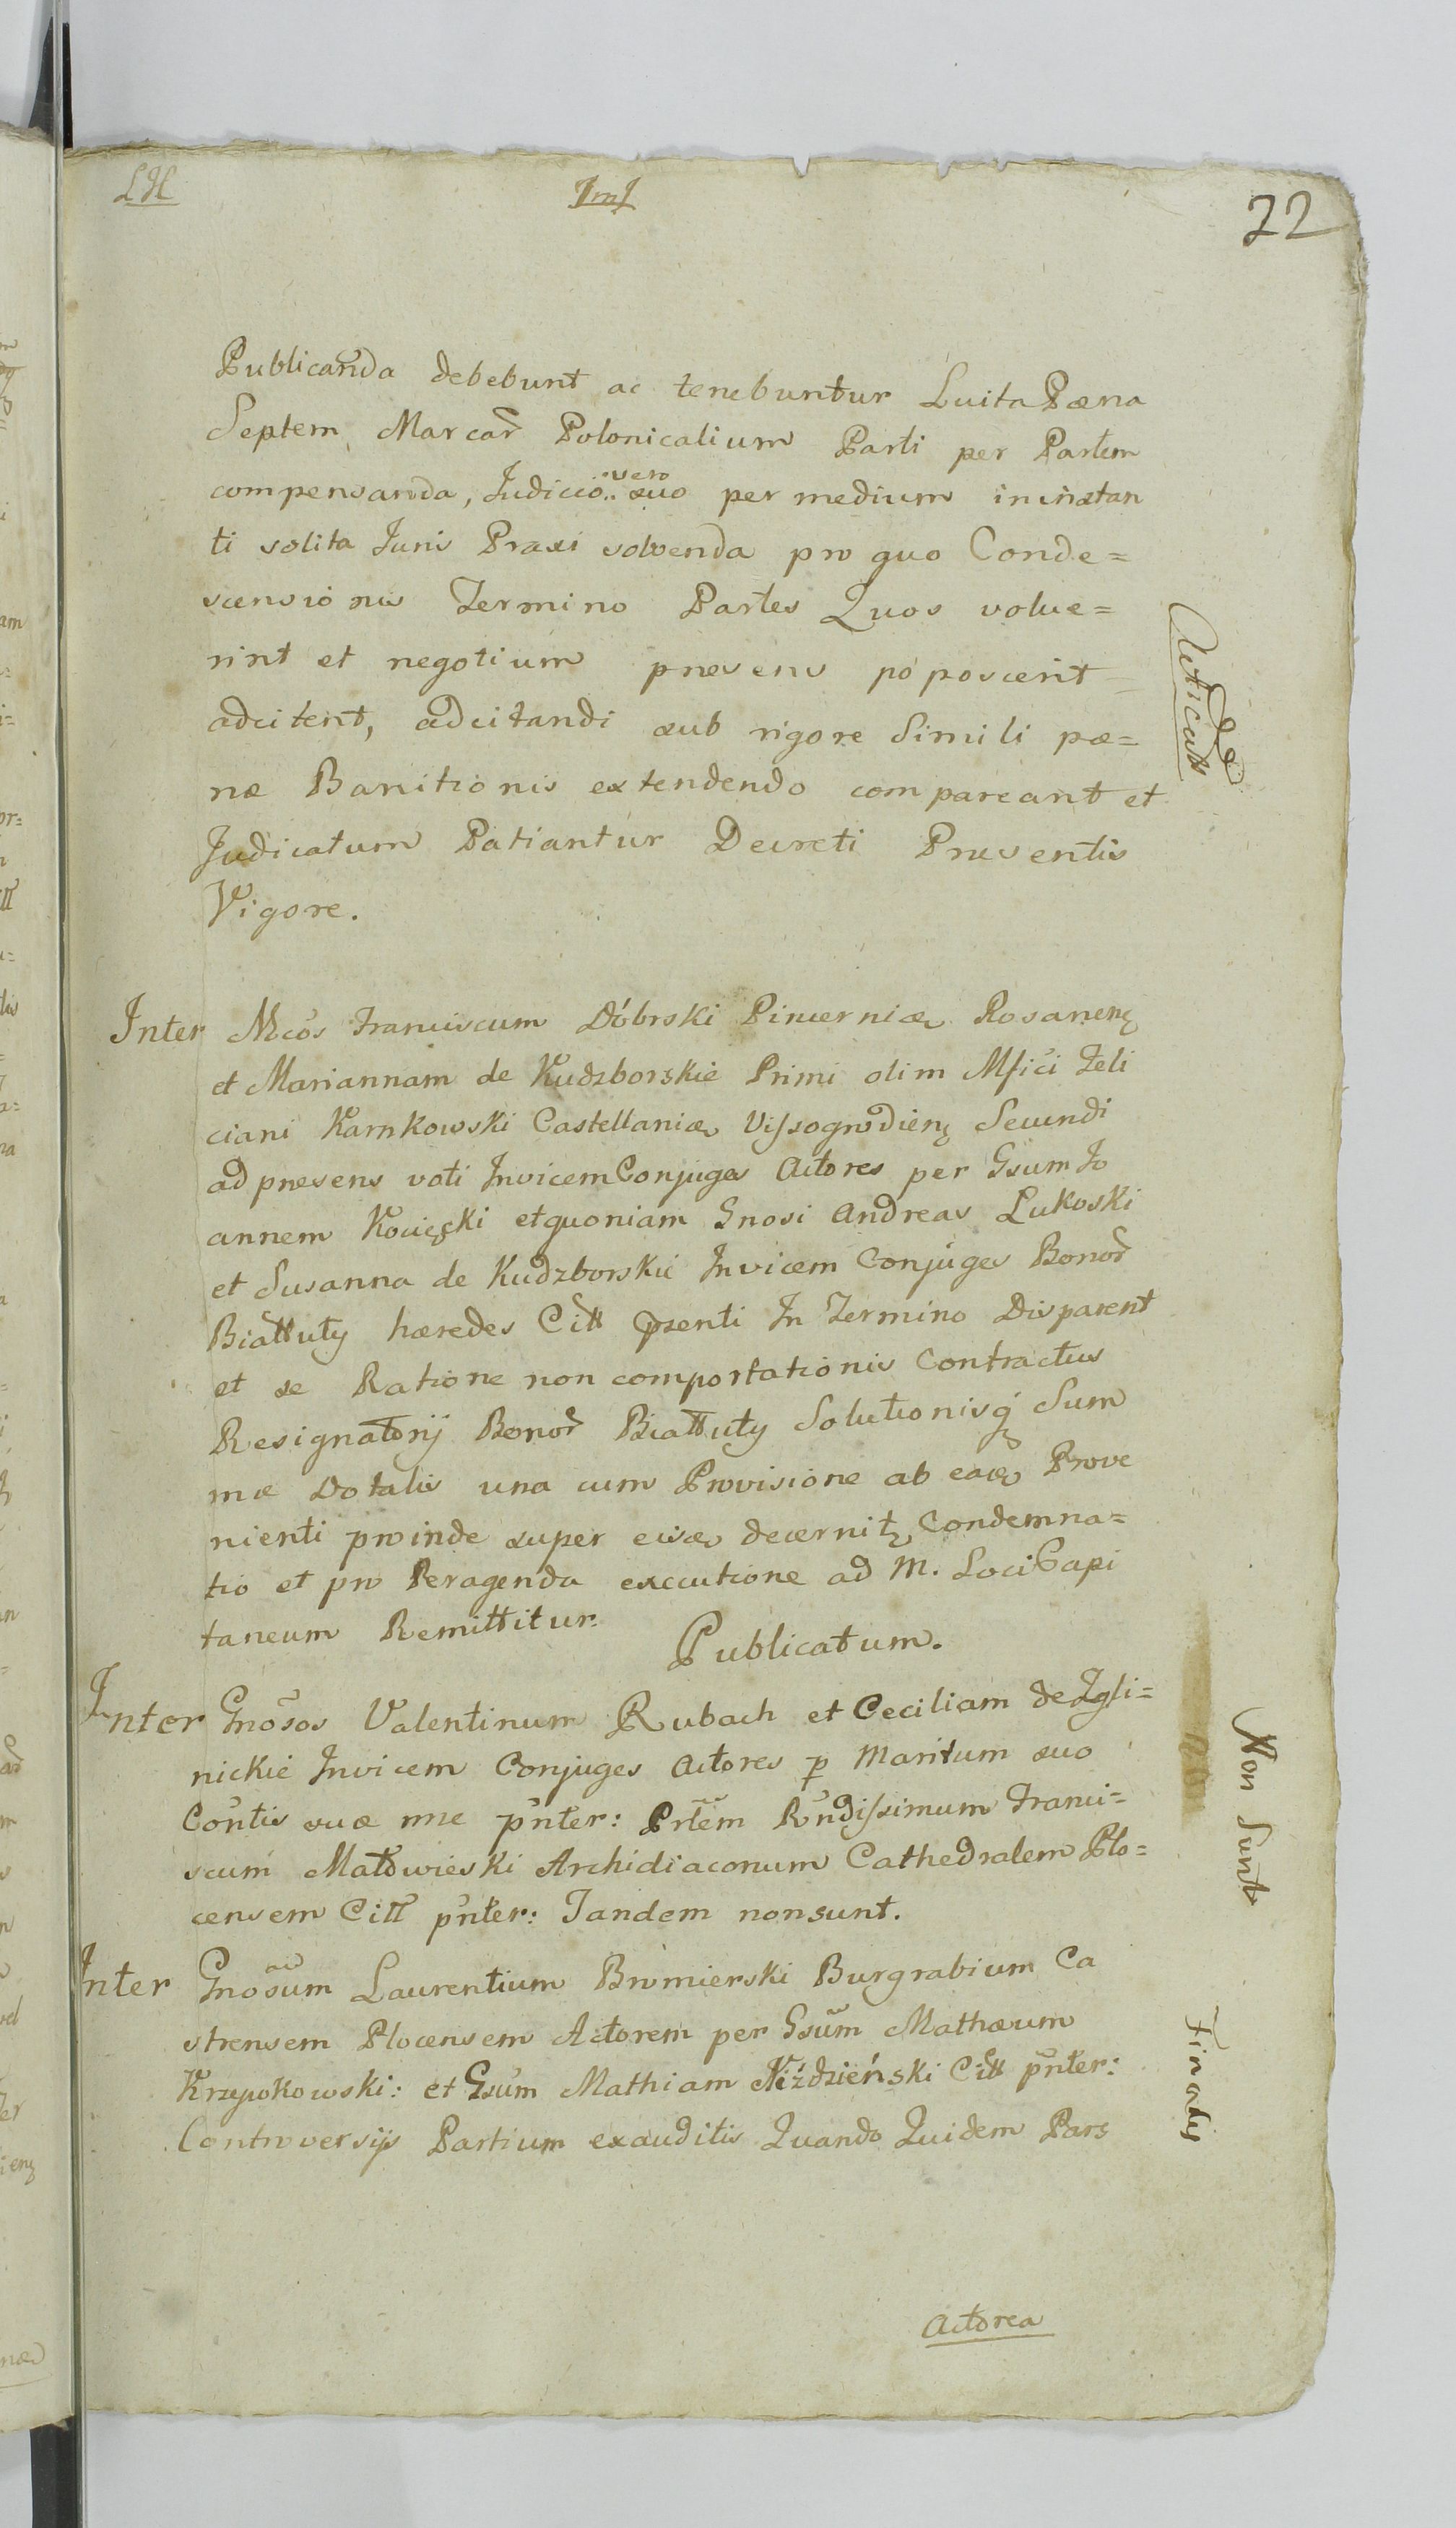 22
Publicanda debebunt ac tenebuntur Luita Pæna
Septem Marcar Polonicalium Parti per Partem
compensanda, Judicio vero suo per medium ininstan
ti solita Juris Praxi solvenda pro quo Conde=
scensionis Termino Partes Quos volue=
rint et negotium præsens poposcerit
adcitent, adcitandi sub rigore Simili pæ=
næ Banitionis extendendo compareant et
Judicatum Patiantur Decreti Præsentis
Vigore.
Inter Mcos Franciscum Dóbrski Pincerniæ Rosanen
et Mariannam de Kudzborskie Primi olim Mfici Feli
ciani Karnkowski Castellaniæ Vissogrodien Secundi
ad præsens voti Invicem Conjuges Actores per Gsum Jo
annem Kocięcki et quoniam Gnosi Andreas Lukoski
et Susanna de Kudzborskie Invicem Conjuges Bonor
Białłuty hæredes Citt præsenti In Termino Disparent
et se Ratione non comportationis Contractus
Resignatorij Bonor Białłuty Solutionisq Sum
mæ Dotalis una cum Provisione ab eadæ Prove
nienti proinde super eisdæ decernit Condemna=
tio et pro Peragenda executione ad M. Loci Capi
taneum Remittitur.
Publicatum.
Inter Gnosos Valentinum Rubach et Ceciliam de Igli=
nickie Invicem Conjuges Actores p Maritum suo
Contis suæ nne pnter: Prtem Rndissimum Franci=
scum Małowieski Archidiaconum Cathedralem Plo=
censem Citt pnter: Tandem non sunt.
Inter Gnosum Laurentium Bromierski Burgrabium Ca
strensem Plocensem Actorem per Gsum Mathæum
Krzywkowski: et Gsum Mathiam Niździeński Citt pnter:
Controversijs Partium exauditis Quando Quidem Pars
Actorea
Non Sunt